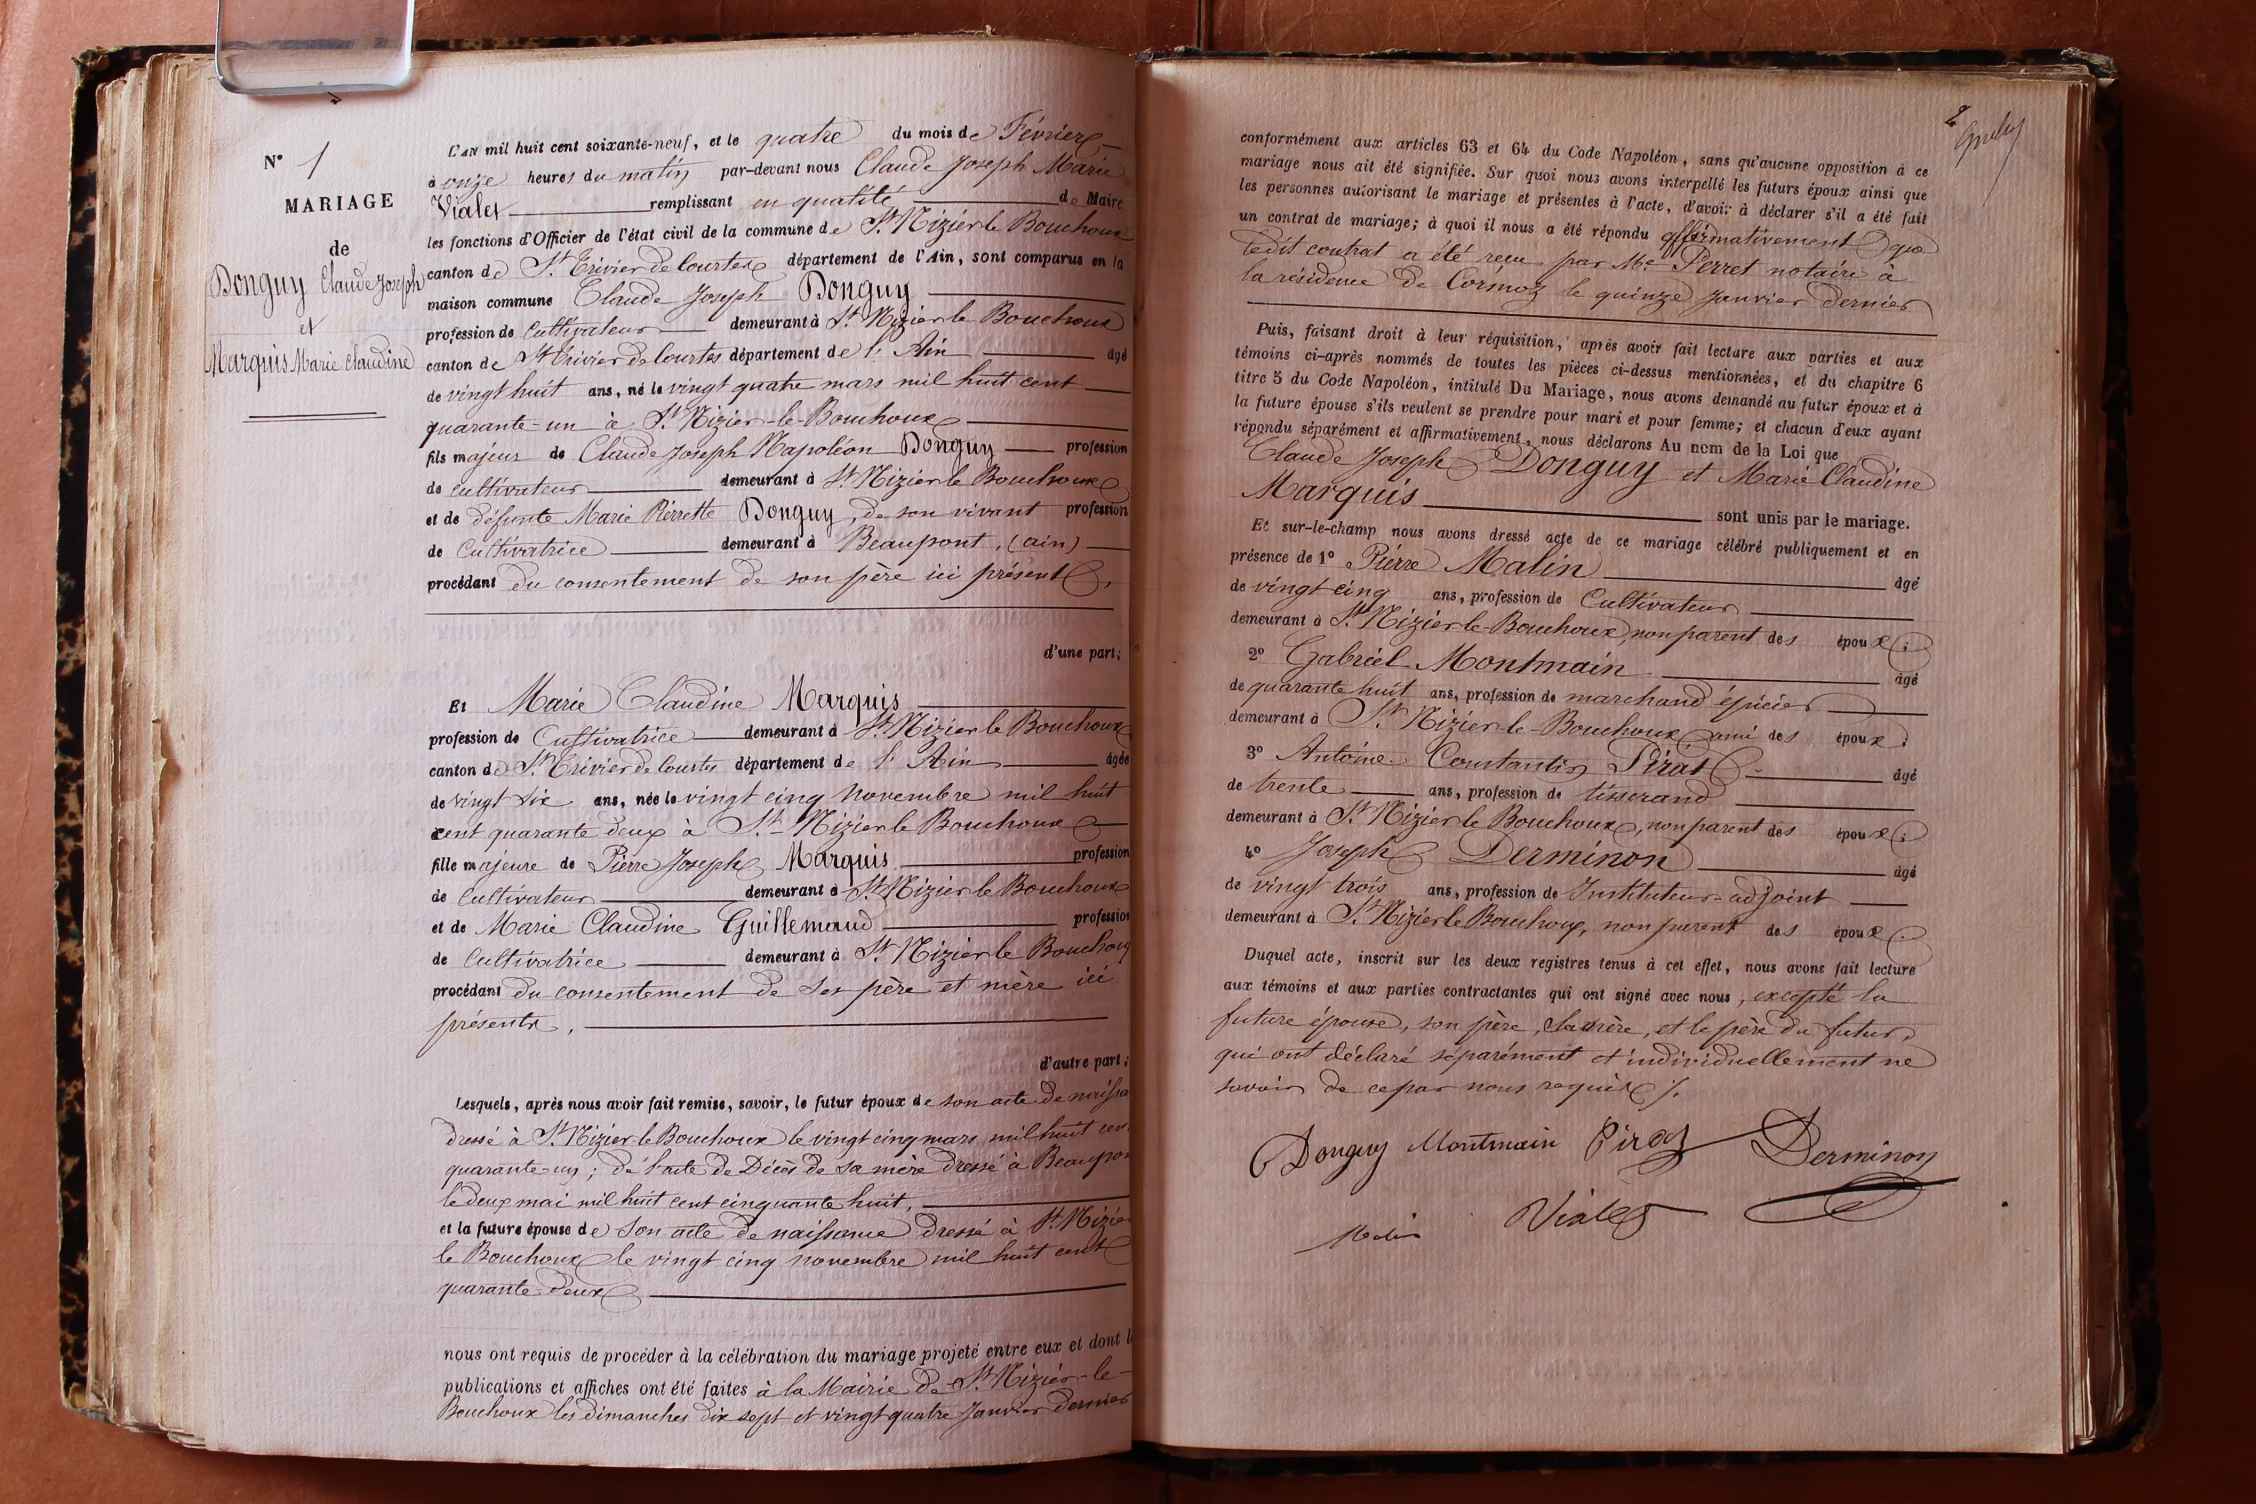 N° 1
MARIAGE
de
Donguy Claude Joseph
et
Marquis Marie Claudine
L'AN mil huit cent soixante-neuf, et le quatre du mois de Février
à onze heures du matin par-devant nous Claude Joseph Marie
Vialet remplissant en qualité de Maire
les fonctions d'Officier de l'état civil de la commune de St Nizier le Bouchoux
canton de St Trivier de Courtes département de l'Ain, sont comparus en la
maison commune Claude Joseph Donguy
profession de cultivateur demeurant à St Nizier le Bouchoux
canton de St Trivier de Courtes département de l'Ain âgé
de vingt huit ans, né le vingt quatre mars mil huit cent
quarante-un à St Nizier-le-Bouchoux
fils majeur de Claude Joseph Napoléon Donguy profession
de cultivateur demeurant à St Nizier le Bouchoux
et de défunte Marie Pierrette Donguy, de son vivant profession
de Cultivatrice demeurant à Beaupont, (ain)
procédant du consentement de son père ici présent,
d'une part;
Et Marie Claudine Marquis
profession de Cultivatrice demeurant à St Nizier le Bouchoux
canton de St Trivier de Courtes département de l'Ain âgée
de vingt six ans, née le vingt cinq novembre mil huit
cent quarante deux à St Nizier le Bouchoux
fille majeure de Pierre Joseph Marquis profession
de Cultivateur demeurant à St Nizier le Bouchoux
et de Marie Claudine Guillemaud profession
de Cultivatrice demeurant à St Nizier le Bouchoux
procédant du consentement de ses père et mère ici
présents,
d'autre part;
Lesquels, après nous avoir fait remise, savoir, le futur époux de son acte de naissa
dressé à St Nizier le Bouchoux le vingt cinq mars mil huit cen
quarante-un; de l'acte de Décès de sa mère dressé à Beaupon
le deux mai mil huit cent cinquante huit,
et la future épouse de son acte de naissance dressé à St Nizier
le Bouchoux le vingt cinq novembre mil huit cent
quarante deux
nous ont requis de procéder à la célébration du mariage projeté entre eux et dont l
publications et affiches ont été faites à la Mairie de St Nizier-le-
Bouchoux les dimanches dix sept et vingt quatre Janvier dernier
2
conformément aux articles 63 et 64 du Code Napoléon, sans qu'aucune opposition à ce
mariage nous ait été signifiée. Sur quoi nous avons interpellé les futurs époux ainsi que
les personnes autorisant le mariage et présentes à l'acte, d'avoir à déclarer s'il a été fait
un contrat de mariage; à quoi il nous a été répondu affirmativement que
ledit contrat a été reçu par Me Perret notaire à
la résidence de Cormoz le quinze Janvier dernier
Puis, faisant droit à leur réquisition, après avoir fait lecture aux parties et aux
témoins ci-après nommés de toutes les pièces ci-dessus mentionnées, et du chapitre 6
titre 5 du Code Napoléon, intitulé Du Mariage, nous avons demandé au futur époux et à
la future épouse s'ils veulent se prendre pour mari et pour femme; et chacun d'eux ayant
répondu séparément et affirmativement, nous déclarons Au nom de la Loi que
Claude Joseph Donguy et Marie Claudine
Marquis sont unis par le mariage.
Et sur-le-champ nous avons dressé acte de ce mariage célébré publiquement et en
présence de 1° Pierre Malin âgé
de vingt cinq ans, profession de Cultivateur
demeurant à St Nizier le Bouchoux, non parent des époux;
2° Gabriel Montmain âgé
de quarante huit ans, profession de marchand épicier
demeurant à St Nizier-le-Bouchoux ami des époux;
3° Antoine Constantin Pirat âgé
de trente ans, profession de tisserand
demeurant à St Nizier le Bouchoux, non parent des époux;
4° Joseph Derminon âgé
de vingt trois ans, profession de Instituteur-adjoint
demeurant à St Nizier le Bouchoux, non parent des époux.
Duquel acte, inscrit sur les deux registres tenus à cet effet, nous avons fait lecture
aux témoins et aux parties contractantes qui ont signé avec nous, excepté la
future épouse, son père, sa mère, et le père du futur,
qui ont déclaré séparément et individuellement ne
savoir de ce par nous requis /.
Donguy Montmain Pirat Derminon
Malin Vialet